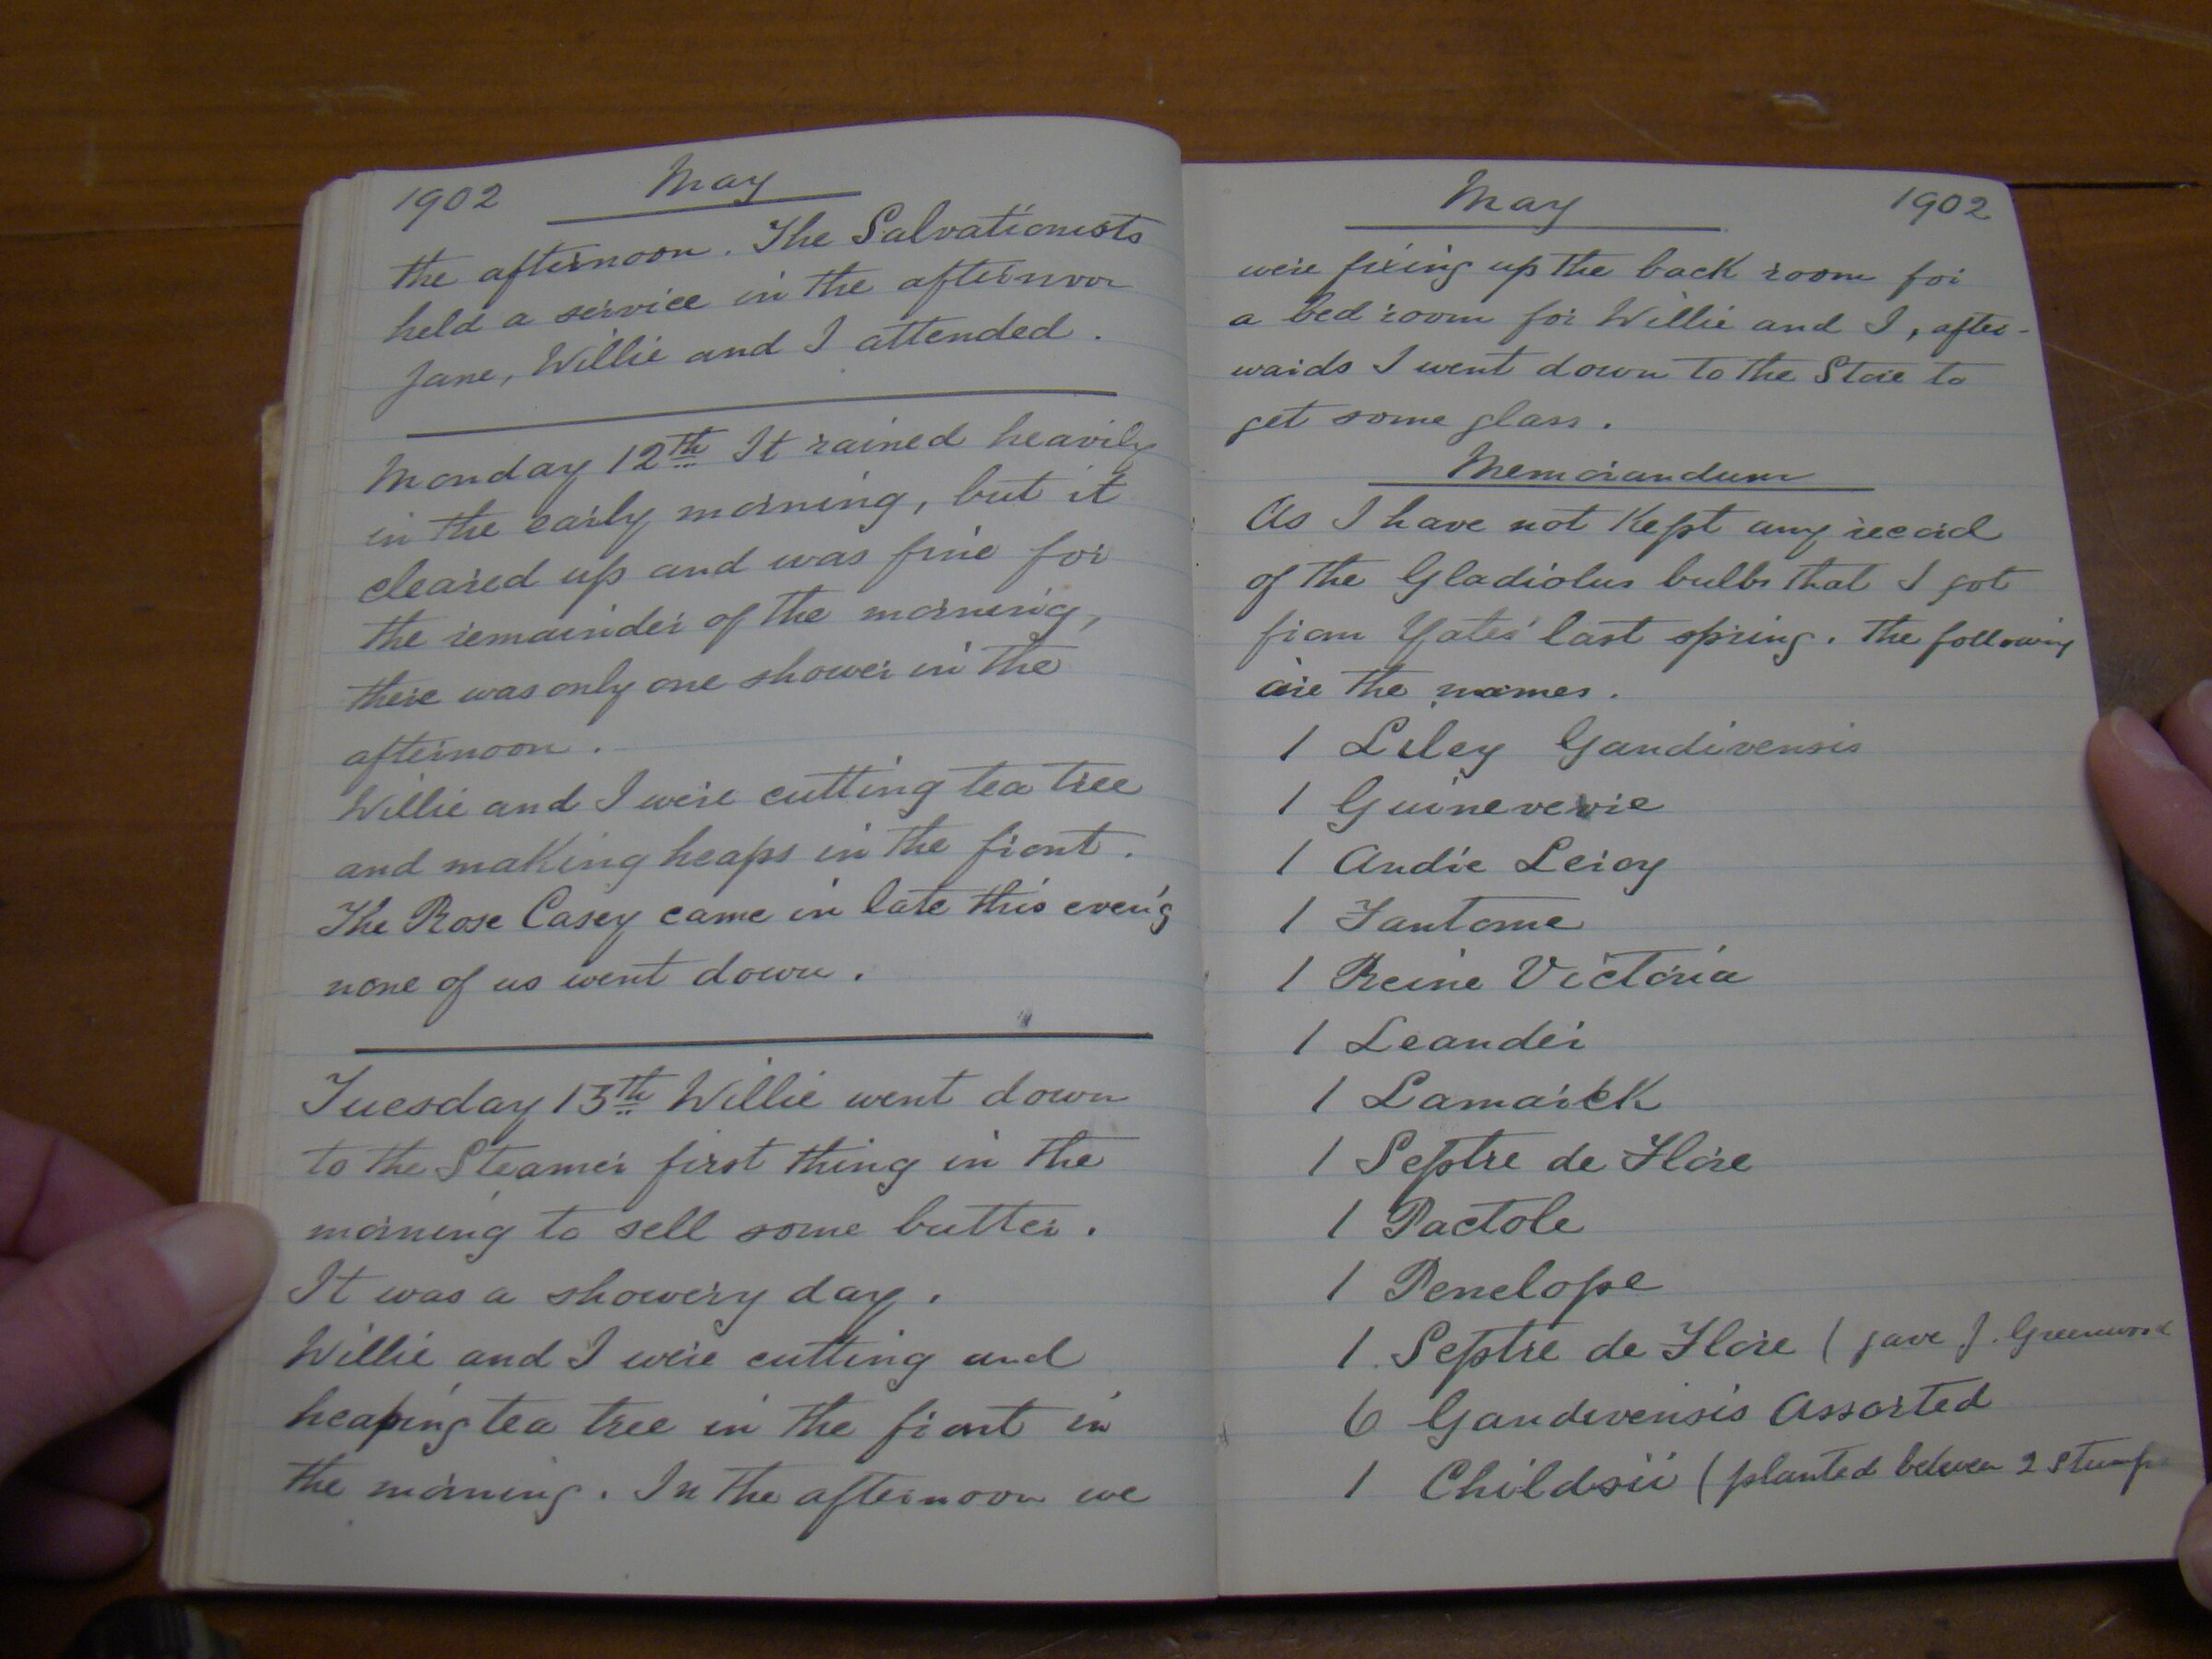 1902 May
the afternoon. The Salvationists
held a service in the afternoon
Jane, Willie and I attended.
Monday 12th It rained heavily
in the early morning, but it
cleared up and was fine for
the remainder of the morning,
there was only one shower in the
afternoon.
Willie and I were cutting tea tree
and making heaps in the front.
The Rose Casey came in late this even'g
none of us went down.
Tuesday 13th Willie went down
to the Steamer first thing in the
morning to sell some butter.
It was a showery day.
Willie and I were cutting and
heaping tea tree in the front in
the morning. In the afternoon we
May 1902
were fixing up the back room for
a bed room for Willie and I, after-
wards I went down to the Store to
get some glass.
Memorandum
As I have not kept any record
of the Gladiolus bulbs that I got
from Yates' last spring. The following
are the names.
1 Liley Gandivensis
1 Guineverie
1 Andre Leroy
1 Fantome
1 Reine Victoria
1 Leander
1 Lamarck
1 Septre de Flore
1 Pactole
1 Penelope
1. Septre de Flore (gave J. Greenwood
6 Gandevensis Assorted
1 Childsii (planted between 2 stumps